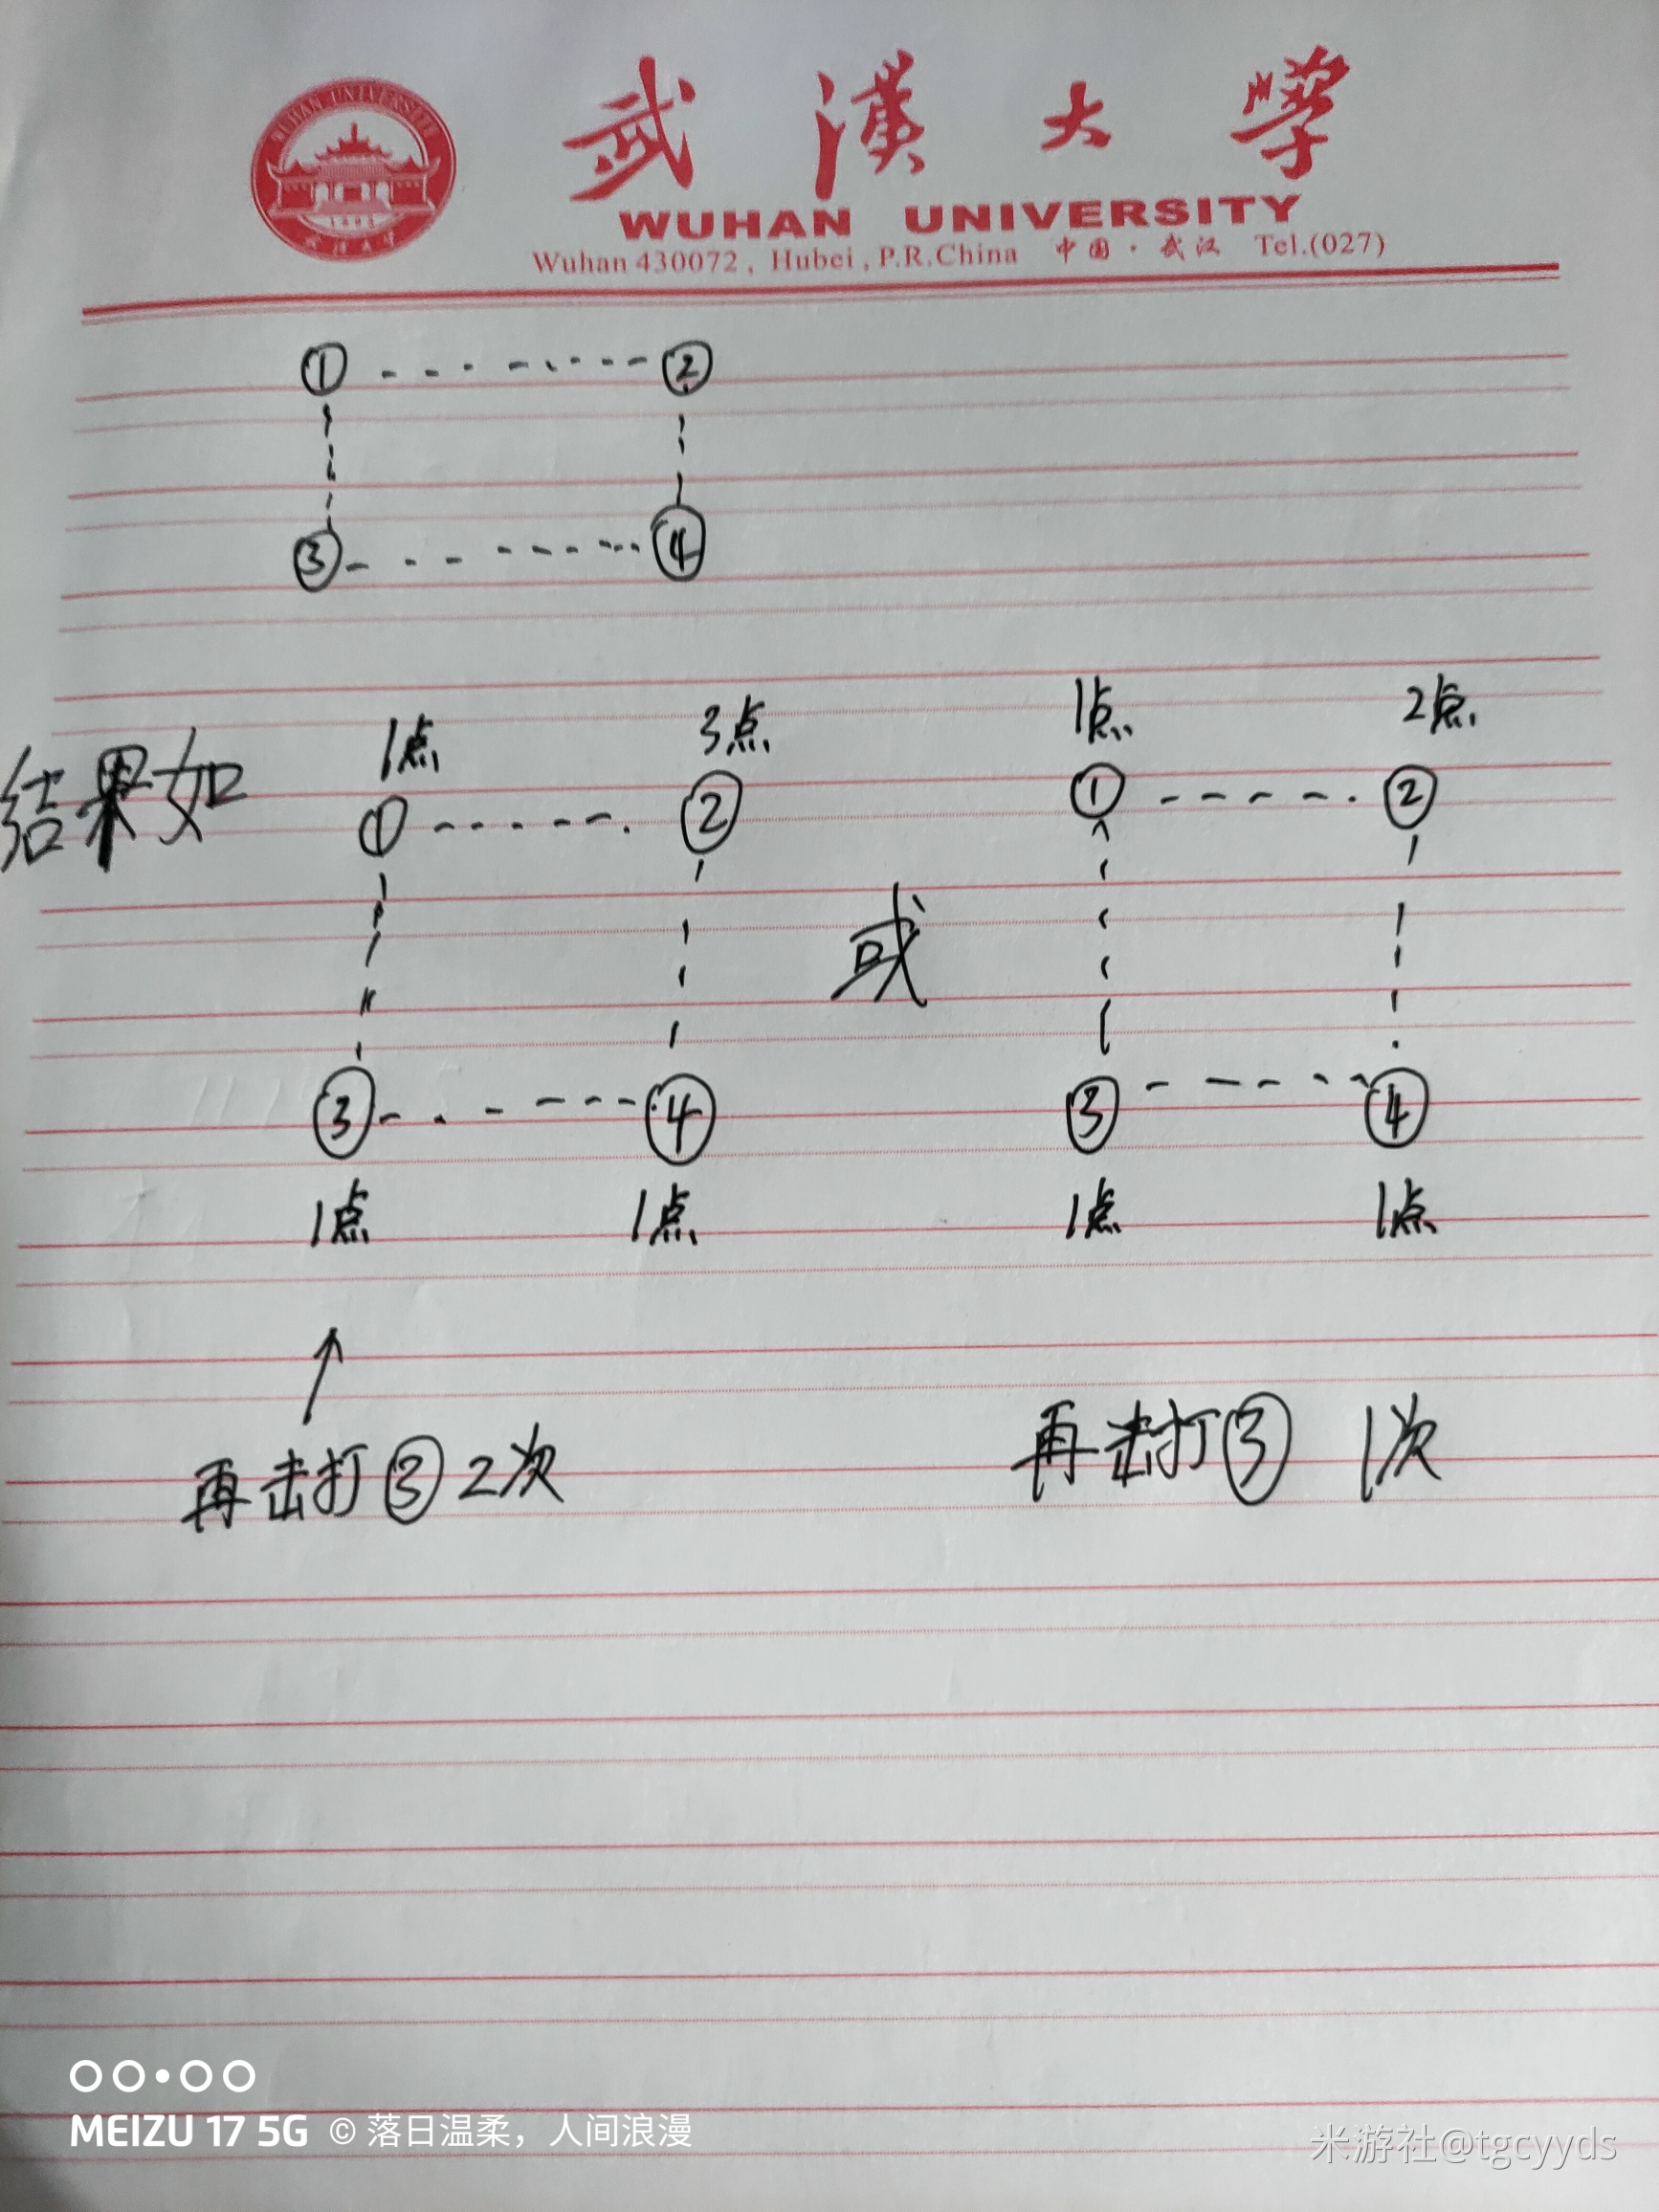 武漢大學
WUHAN UNIVERSITY
WUHAN UNIVERSITY
1893
武汉大学
Wuhan 430072, Hubei, P.R.China 中国·武汉 Tel.(027)
① ②
③ ④
1点 3点 1点 2点
结果如 ① ② ① ②
或
③ ④ ③ ④
1点 1点 1点 1点
再击打③2次 再击打③ 1次
MEIZU 17 5G © 落日温柔，人间浪漫
米游社@tgcyyds